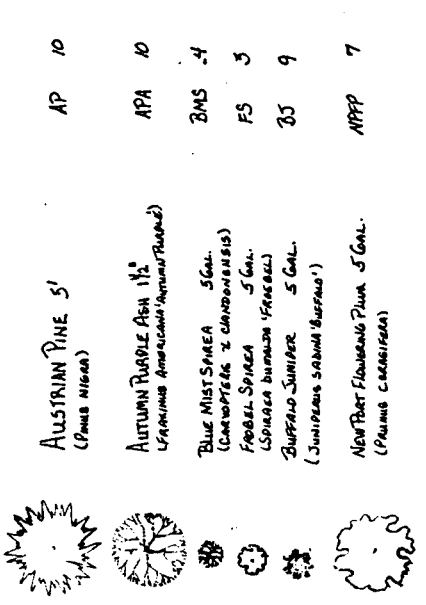 AUSTRIAN PINE 5' AP 10
(PINUS NIGRA)
AUTUMN PURPLE ASH 1½" APA 10
(FRAXINUS AMERICANA 'AUTUMN PURPLE)
BLUE MIST SPIREA 5 GAL. BMS 4
(CARYOPTERIS X CLANDONENSIS)
FROBEL SPIREA 5 GAL. FS 3
(SPIRAEA BUMALDA 'FROEBEL)
BUFFALO JUNIPER 5 GAL. BJ 9
(JUNIPERUS SABINA 'BUFFALO')
NEWPORT FLOWERING PLUM 5 GAL. NPFP 7
(PRUNUS CERASIFERA)